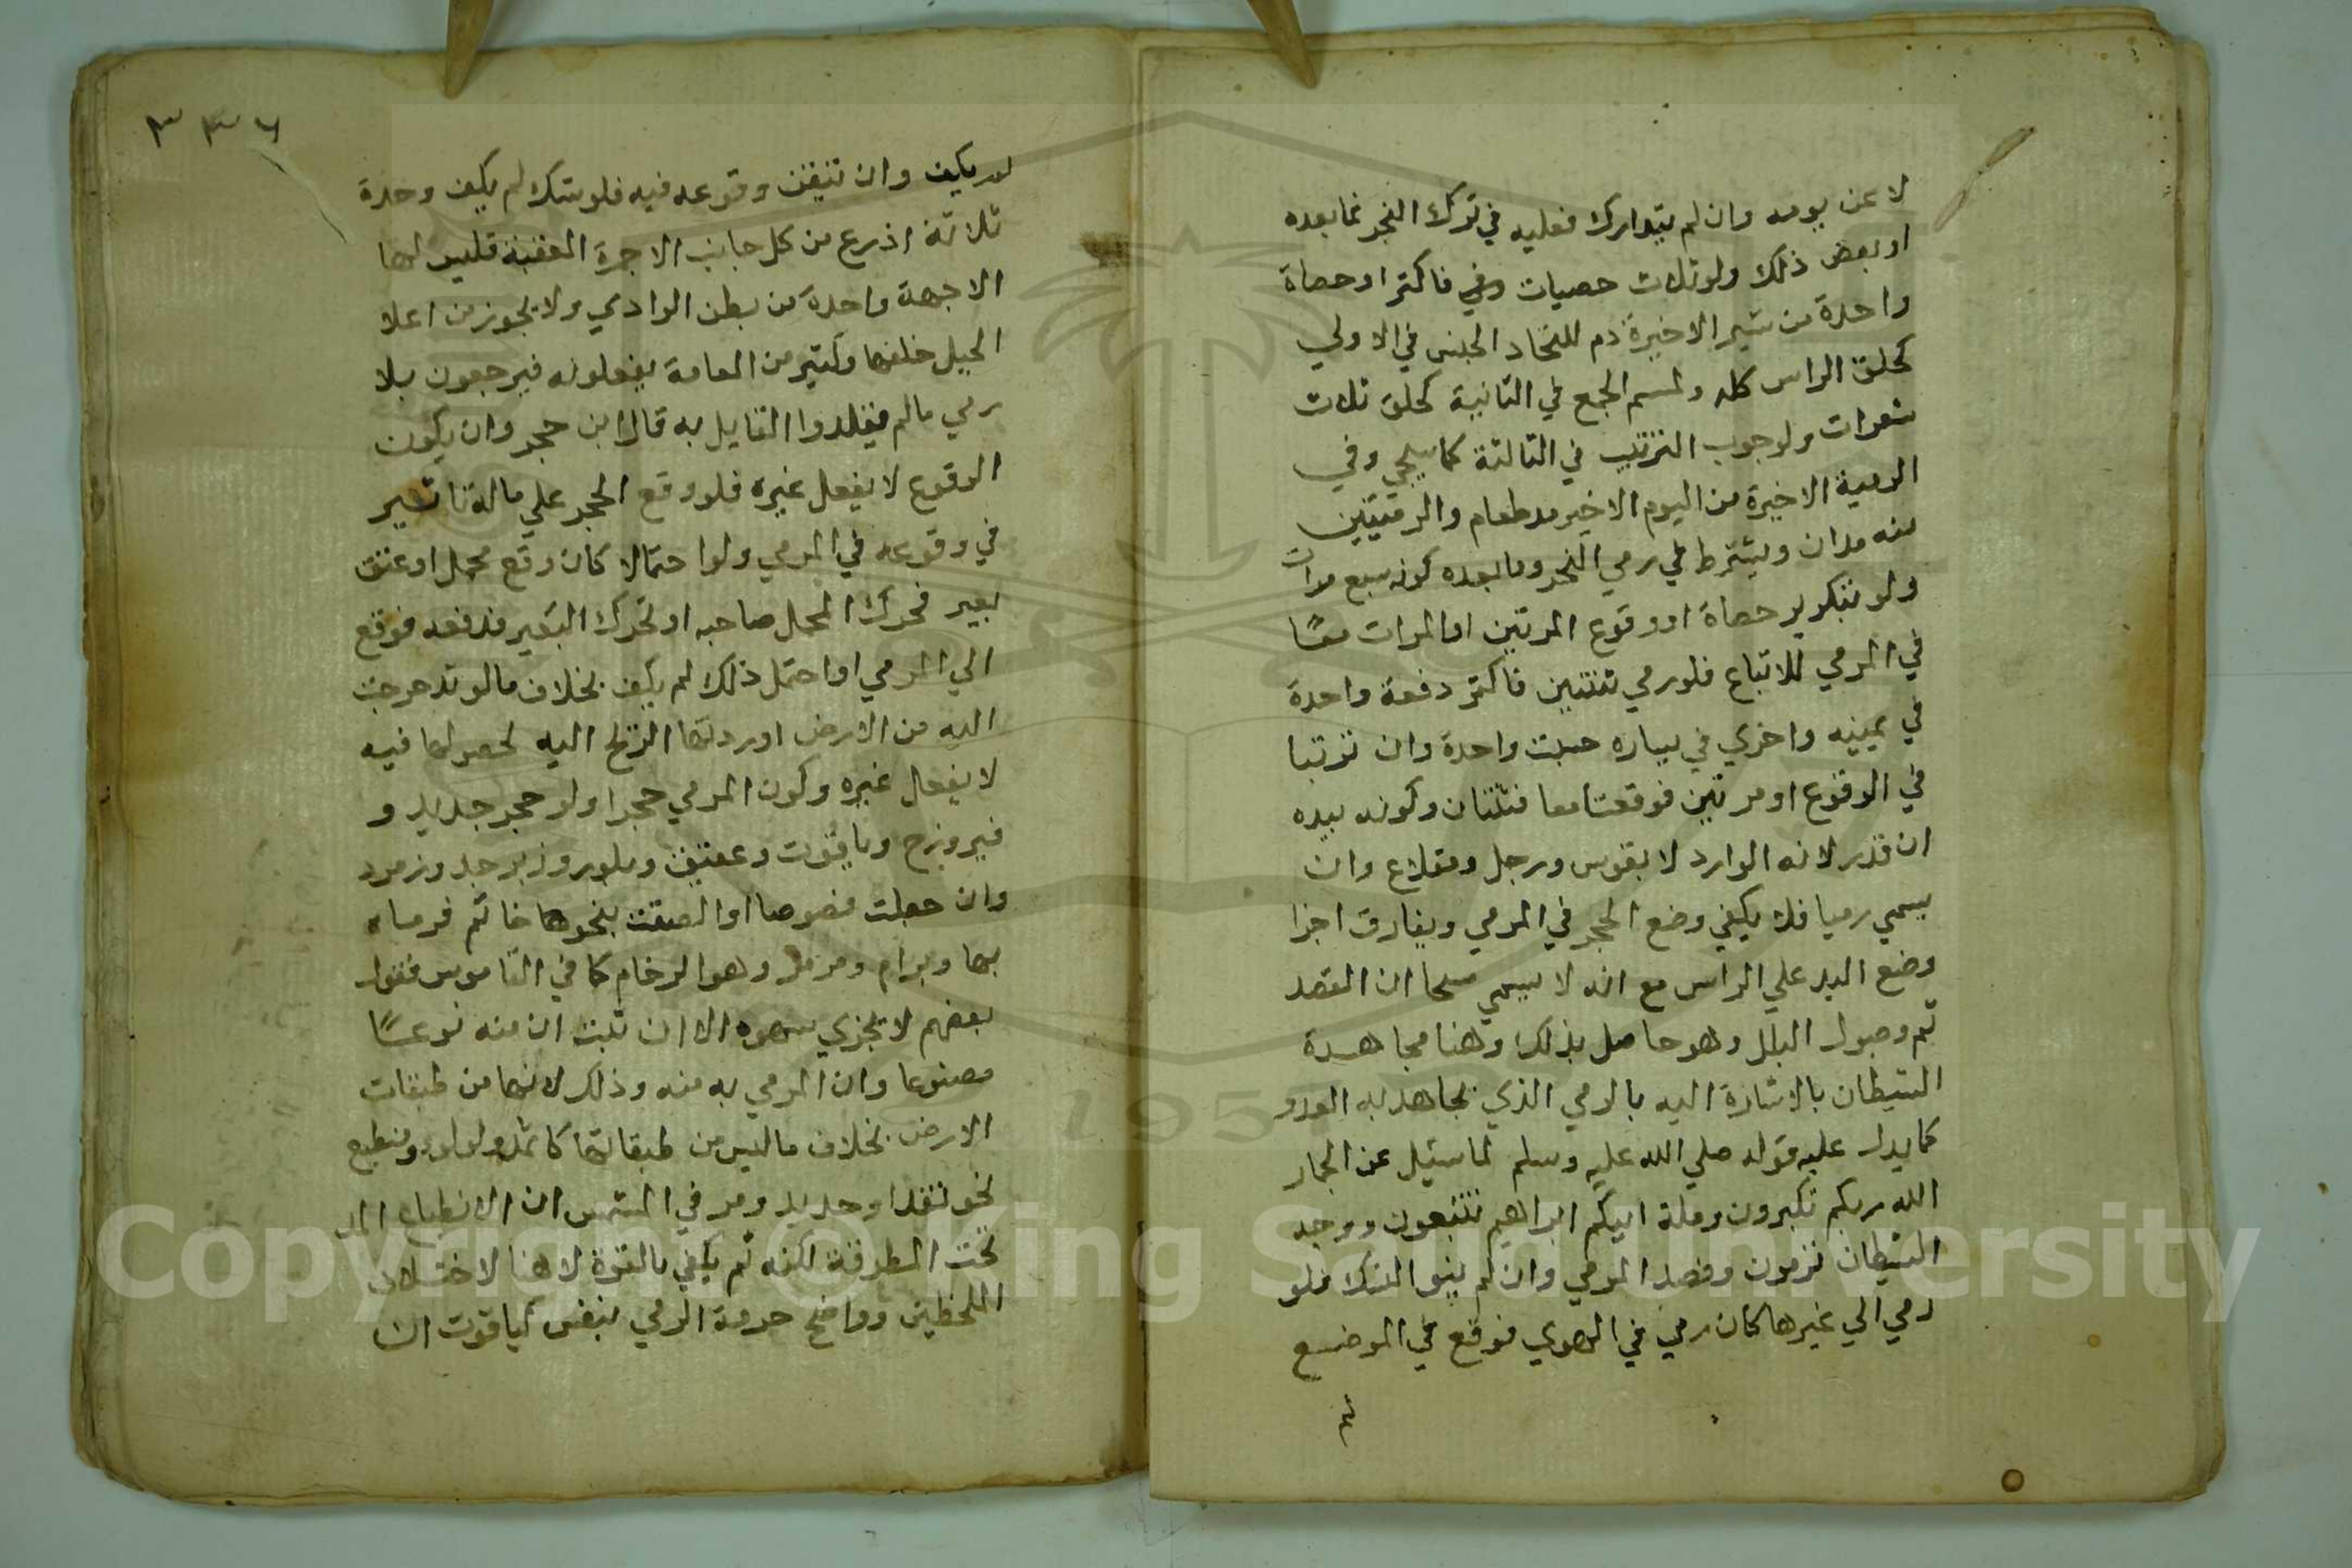 لا عن يومه وان لم يتدارك فعليه في ترك النحر فما بعده
او بعض ذلك ولو ثلاث حصيات وفي فاكثر او حصاة
واحدة من الاخيرة دم للتحاد الجنس في الاولي
كحلق الراس كله ولمسم الجمع في الثانية كحلق ثلاث
شعرات ولوجوب الترتيب في الثالثة كما سيجي وفي
الرمية الاخيرة من اليوم الاخير مد طعام والرميتين
منه مدان ويشترط في رمي النحر وما بعده كونه سبع مرات
ولو بتكرير حصاة او وقوع المرتين او المرات معًا
في المرمي للاتباع فلو رمي ثنتين فاكثر دفعة واحدة
في يمينه واخري في يساره حسبت واحدة وان ترتبا
في الوقوع او مرتين فوقعتا معا فثنتان وكونه بيده
ان قدر لانه الوارد لا بقوس ورجل ومقلاع وان
يسمي رميا فلا يكفي وضع الحجر في المرمي ويفارق اجزا
وضع اليد علي الراس مع انه لا يسمي مسحا ان القصد
ثم وصول البلل وهو حاصل بذلك وهنا مجاهدة
الشيطان بالاشارة اليه بالرمي الذي يجاهد به العدو
كما يدل عليه قوله صلي الله عليه وسلم لما سئيل عن الجمار
الله ربكم تكبرون وملة ابيكم ابراهيم تتبعون ووجه
الشيطان ترمون وقصد المرمي وان لم ينو النسك فلو
رمي الي غيرها كان رمي في الهوي فوقع في الموضع
لم
٣٣٦
لم يكف وان تيقن وقوعه فيه فلو شك لم يكف وحده
ثلاثة اذرع من كل جانب الا جمرة العقبة فليس لها
الا جهة واحدة من بطن الوادي ولا يجوز من اعلا
الجبل خلفها وكثير من العامة يفعلونه فيرجعون بلا
رمي مالم يقلدوا القايل به قال ابن حجر وان يكون
الوقوع لا بفعل غيره فلو وقع الحجر علي ماله تاثير
في وقوعه في المرمي ولو احتمالا كان وقع محمل او عنق
بعير فحرك المحمل صاحبه او تحرك البعير فدفعه فوقع
الي المرمي او احتمل ذلك لم يكف بخلاف مالو تدحرجت
اليه من الارض او ردتها الريح اليه لحصولها فيه
لا بفعل غيره وكون المرمي حجرا ولو حجر جديد و
فيروزج وياقوت وعقيق وبلور وزبرجد وزمرد
وان جعلت فصوصا او الصقت بنحوها خاتم فرماه
بها وبرام ومرمر وهو الرخام كما في القاموس فقول
بعضهم لا يجزي سهوه الا ان ثبت ان منه نوعًا
مصنوعا وان المرمي به منه وذلك لانها من طبقات
الارض بخلاف ما ليس من طبقاتها ولولو ومنطبع
نحو نقد او حديد ومر في المشمس ان الانطباع المد
تحت المطرقة لكنه ثم يكفي بالقوة لا هنا لاختلاف
اللحظين وواضح حرمة الرمي بنفس كياقوت ان
Copyright © King Saud University
1957